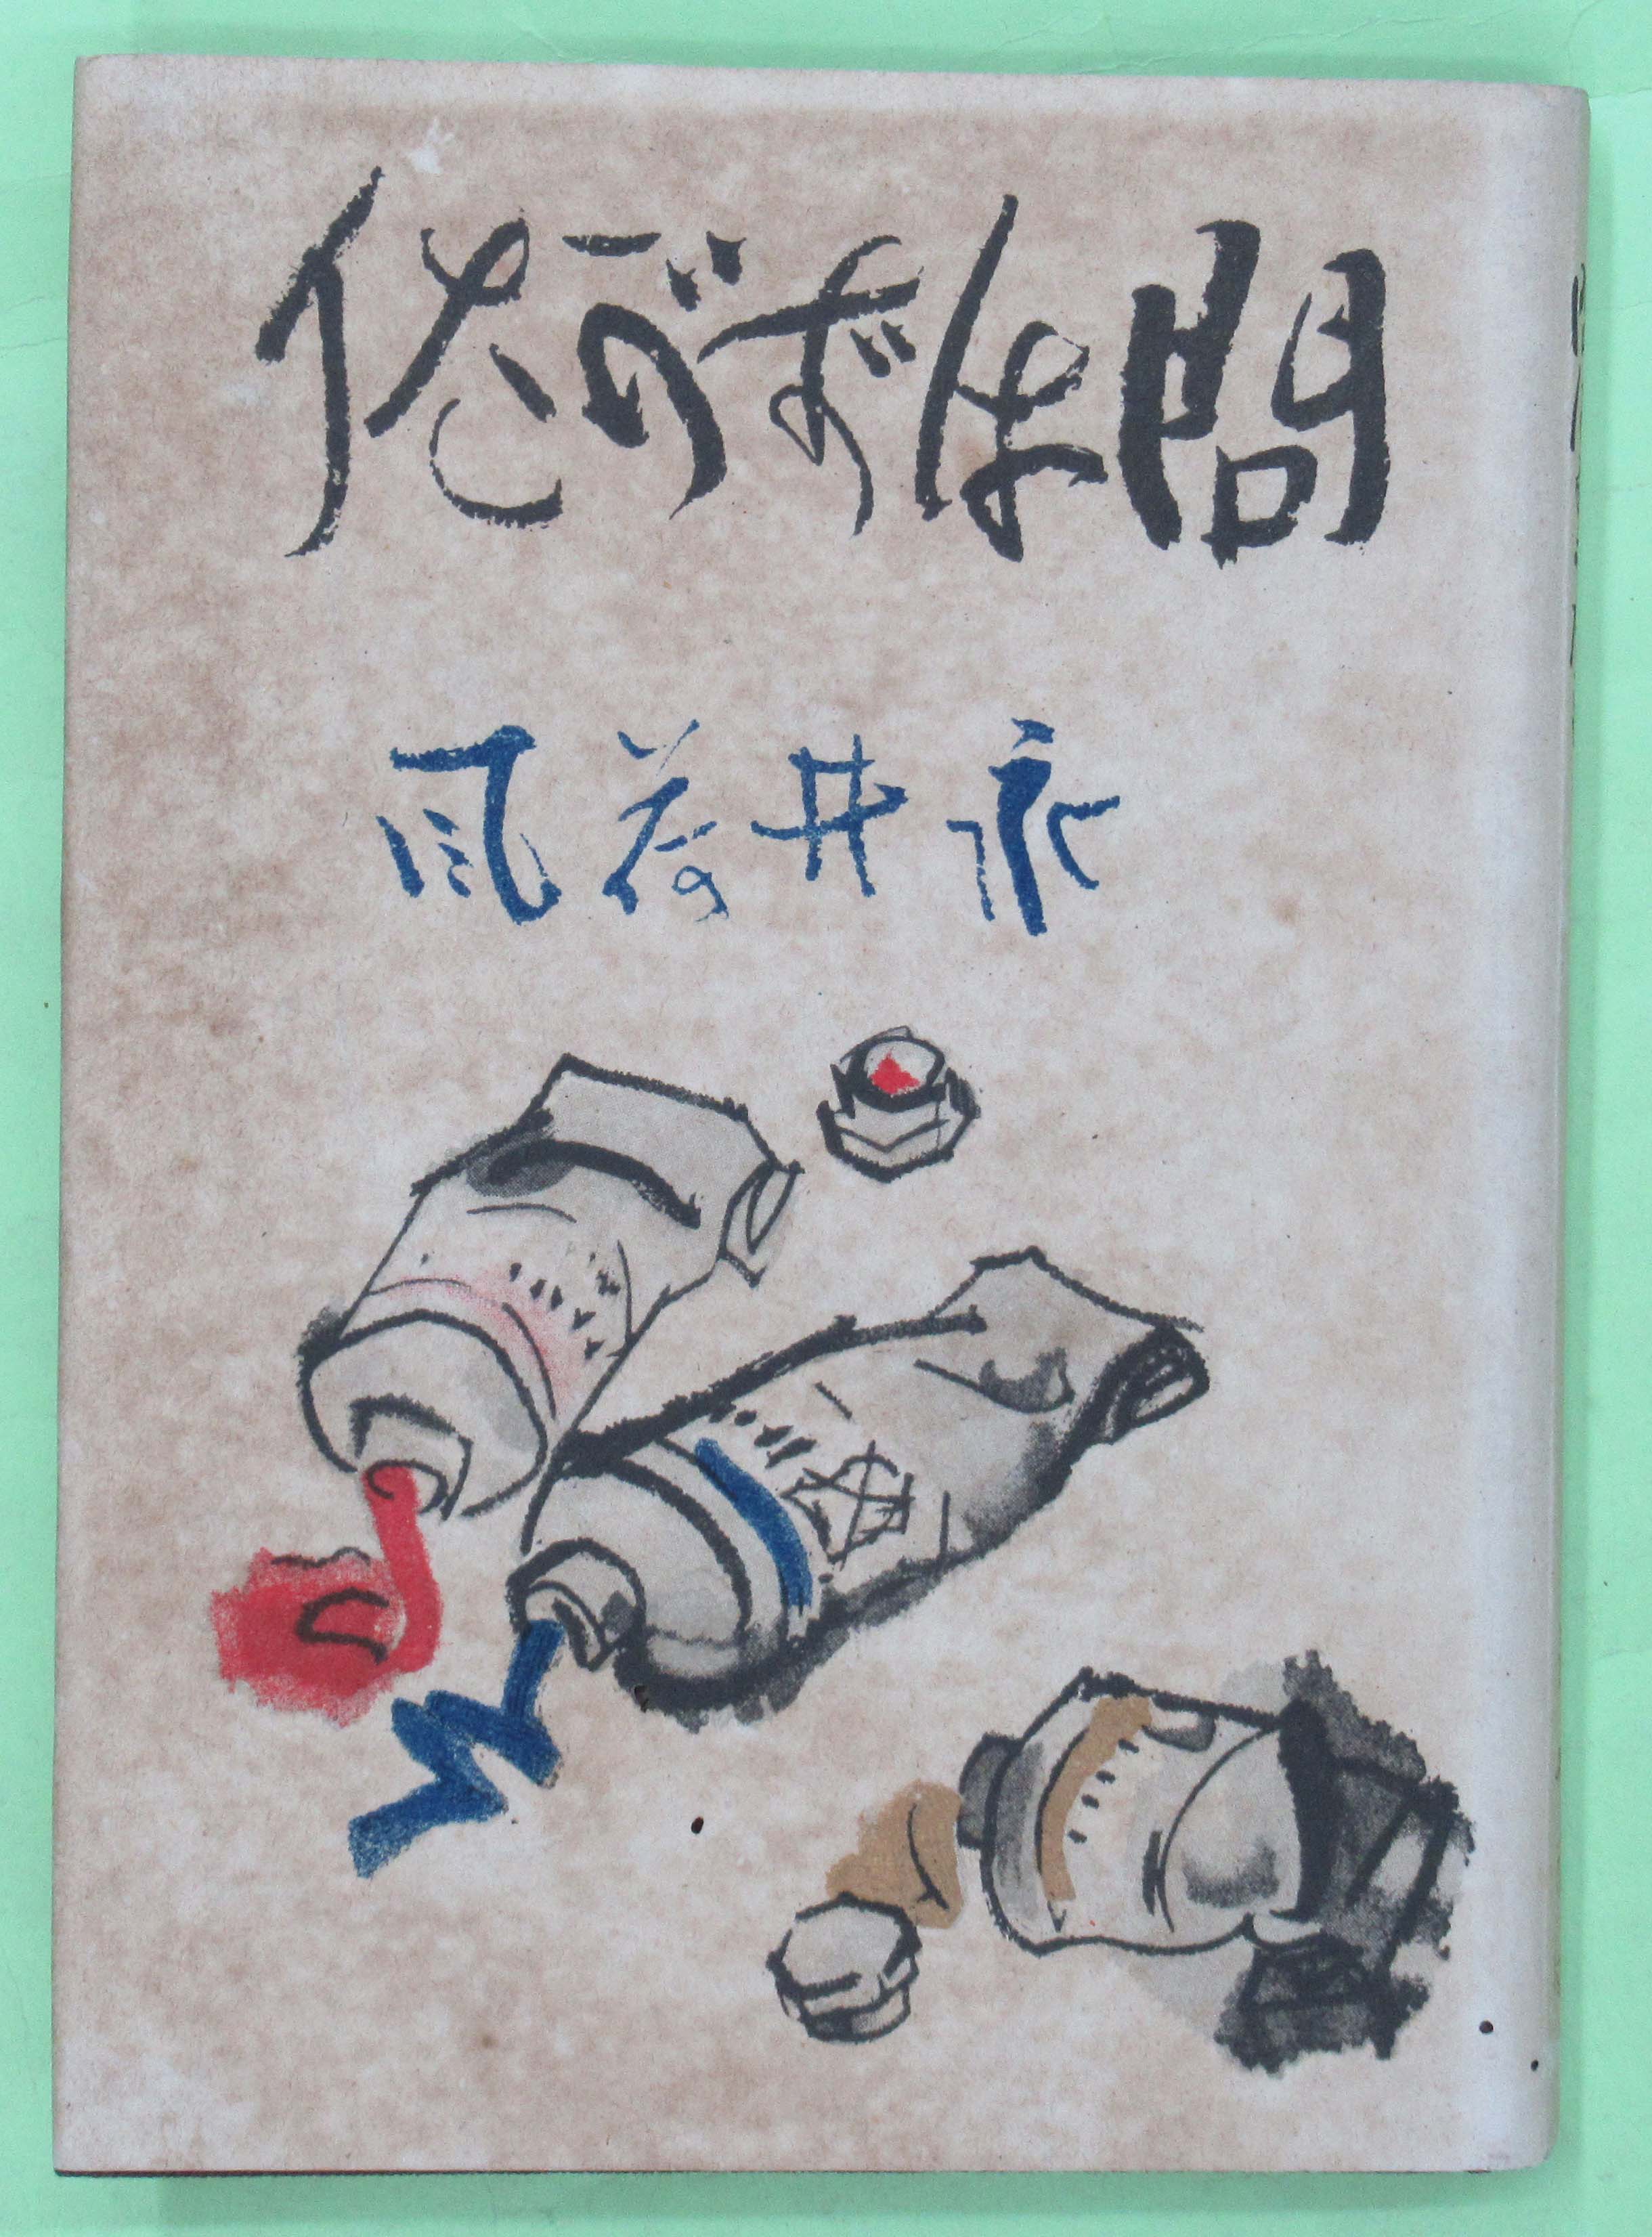 問はずがたり
永井荷風